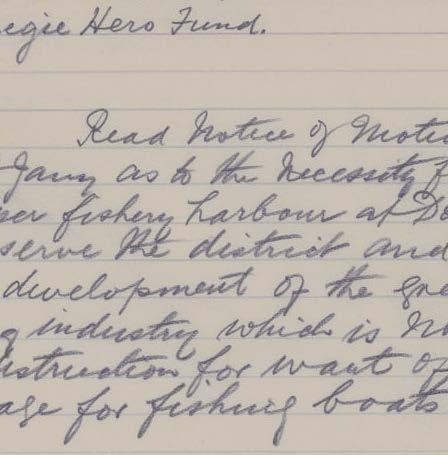 egie Hero Fund.
Read Notice of Motio
Jany as to the necessity f
ser fishery harbour at Do
serve the district and
development of the gre
g industry which is no
struction for want of
age for fishing boats